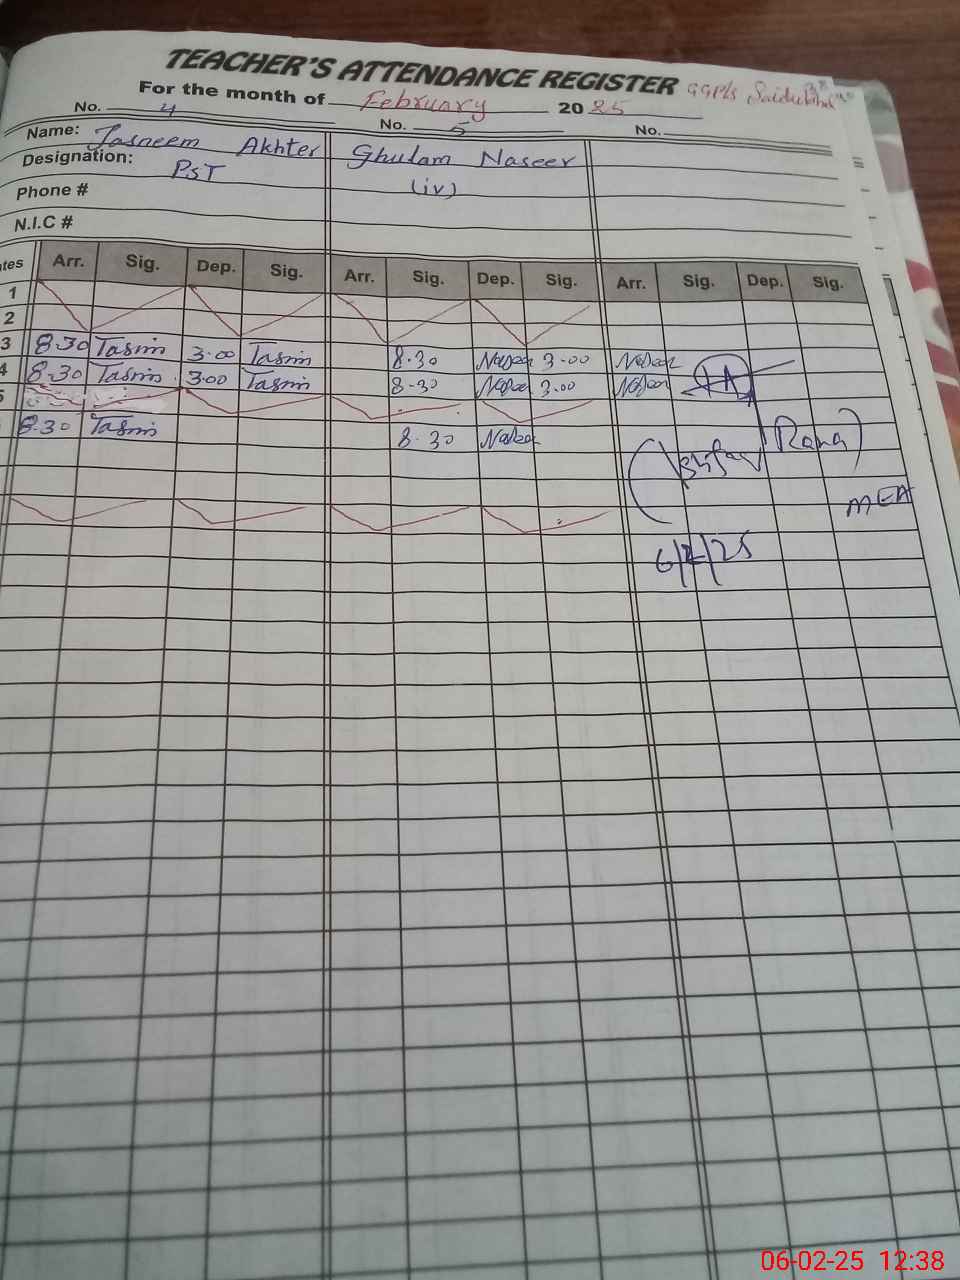 TEACHER'S ATTENDANCE REGISTER GGPS
For the month of February 2025
No. 4 No. 5 No.
Name: Tasneem Akhter Ghulam Naseer
Designation: PST (iv)
Phone #
N.I.C #
Arr. Sig. Dep. Sig. Arr. Sig. Dep. Sig. Arr. Sig. Dep. Sig.
1
2
3 8.30 Tasnim 3.00 Tasnim 8.30 Naseer 3.00 Naseer
4 8.30 Tasnim 3.00 Tasnim 8.30 Naseer 3.00 Naseer
5
8.30 Tasnim 8.30 Naseer
(Ishfaq Rana)
MEA
6/2/25
06-02-25 12:38